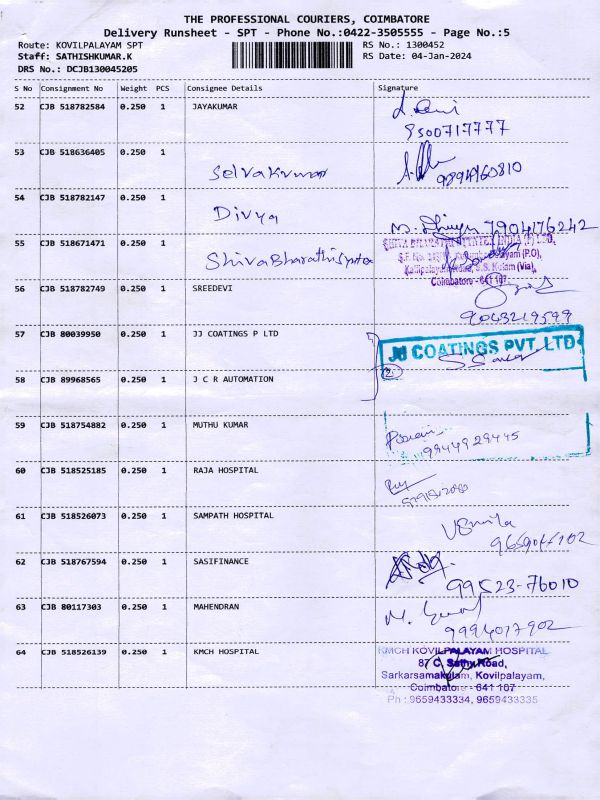 THE PROFESSIONAL COURIERS, COIMBATORE
Delivery Runsheet - SPT - Phone No.:0422-3505555 - Page No.:5
Route: KOVILPALAYAM SPT RS No.: 1300452
Staff: SATHISHKUMAR.K RS Date: 04-Jan-2024
DRS No.: DCJB130045205
S No Consignment No Weight PCS Consignee Details Signature
52 CJB 518782584 0.250 1 JAYAKUMAR
9500717777
53 CJB 518636405 0.250 1
Selvakumar 9894960810
54 CJB 518782147 0.250 1
Divya 7904176242
55 CJB 518671471 0.250 1
ShivaBharathiSyntex
SHIVA BHARATHI SYNTEX INDIA (P) LTD,
Kalipalayam S.S. Kulam (Via),
Coimbatore - 641 107
56 CJB 518782749 0.250 1 SREEDEVI
9043219599
57 CJB 80039950 0.250 1 JJ COATINGS P LTD
JJ COATINGS PVT. LTD
58 CJB 89968565 0.250 1 J C R AUTOMATION
2
59 CJB 518754882 0.250 1 MUTHU KUMAR
9944929445
60 CJB 518525185 0.250 1 RAJA HOSPITAL
61 CJB 518526073 0.250 1 SAMPATH HOSPITAL
62 CJB 518767594 0.250 1 SASIFINANCE
99523-76010
63 CJB 80117303 0.250 1 MAHENDRAN
9994017902
64 CJB 518526139 0.250 1 KMCH HOSPITAL
KMCH KOVILPALAYAM HOSPITAL
87 C, Sathy Road,
Sarkarsamakulam, Kovilpalayam,
Coimbatore - 641 107
Ph : 9659433334, 9659433335